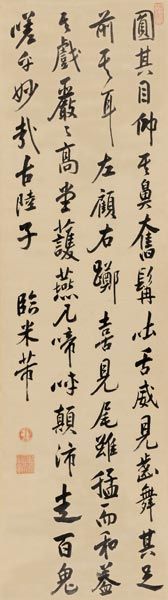 圓其目仰其鼻奮髯吐舌威見齒舞其足
前其耳左顧右躑喜見尾雖猛而和蓋
其戲嚴〻高堂護燕几啼呼顛沛走百鬼
嗟乎妙哉古陸子 臨米芾